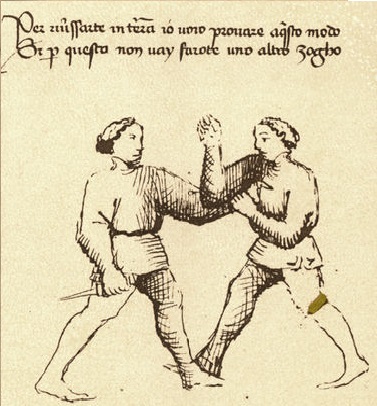 Per riũssarte in tẽra io voio prouare aq̃sto modo
Si ꝑ questo non vay farote uno altro zogho